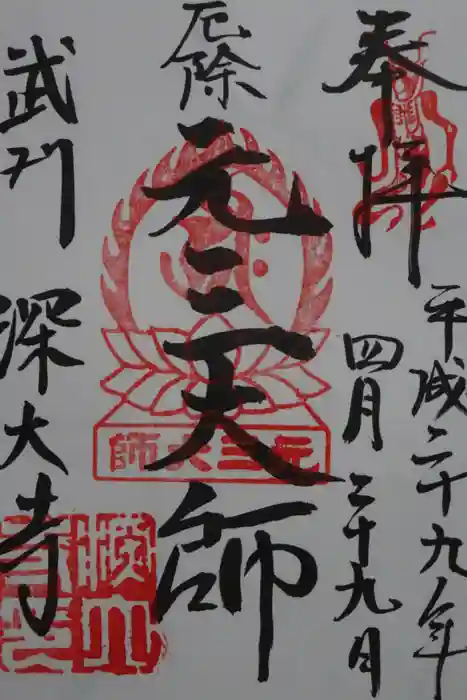 奉拝
平成二十九年
四月二十九日
厄除
元三大師
武州
深大寺
元三大師